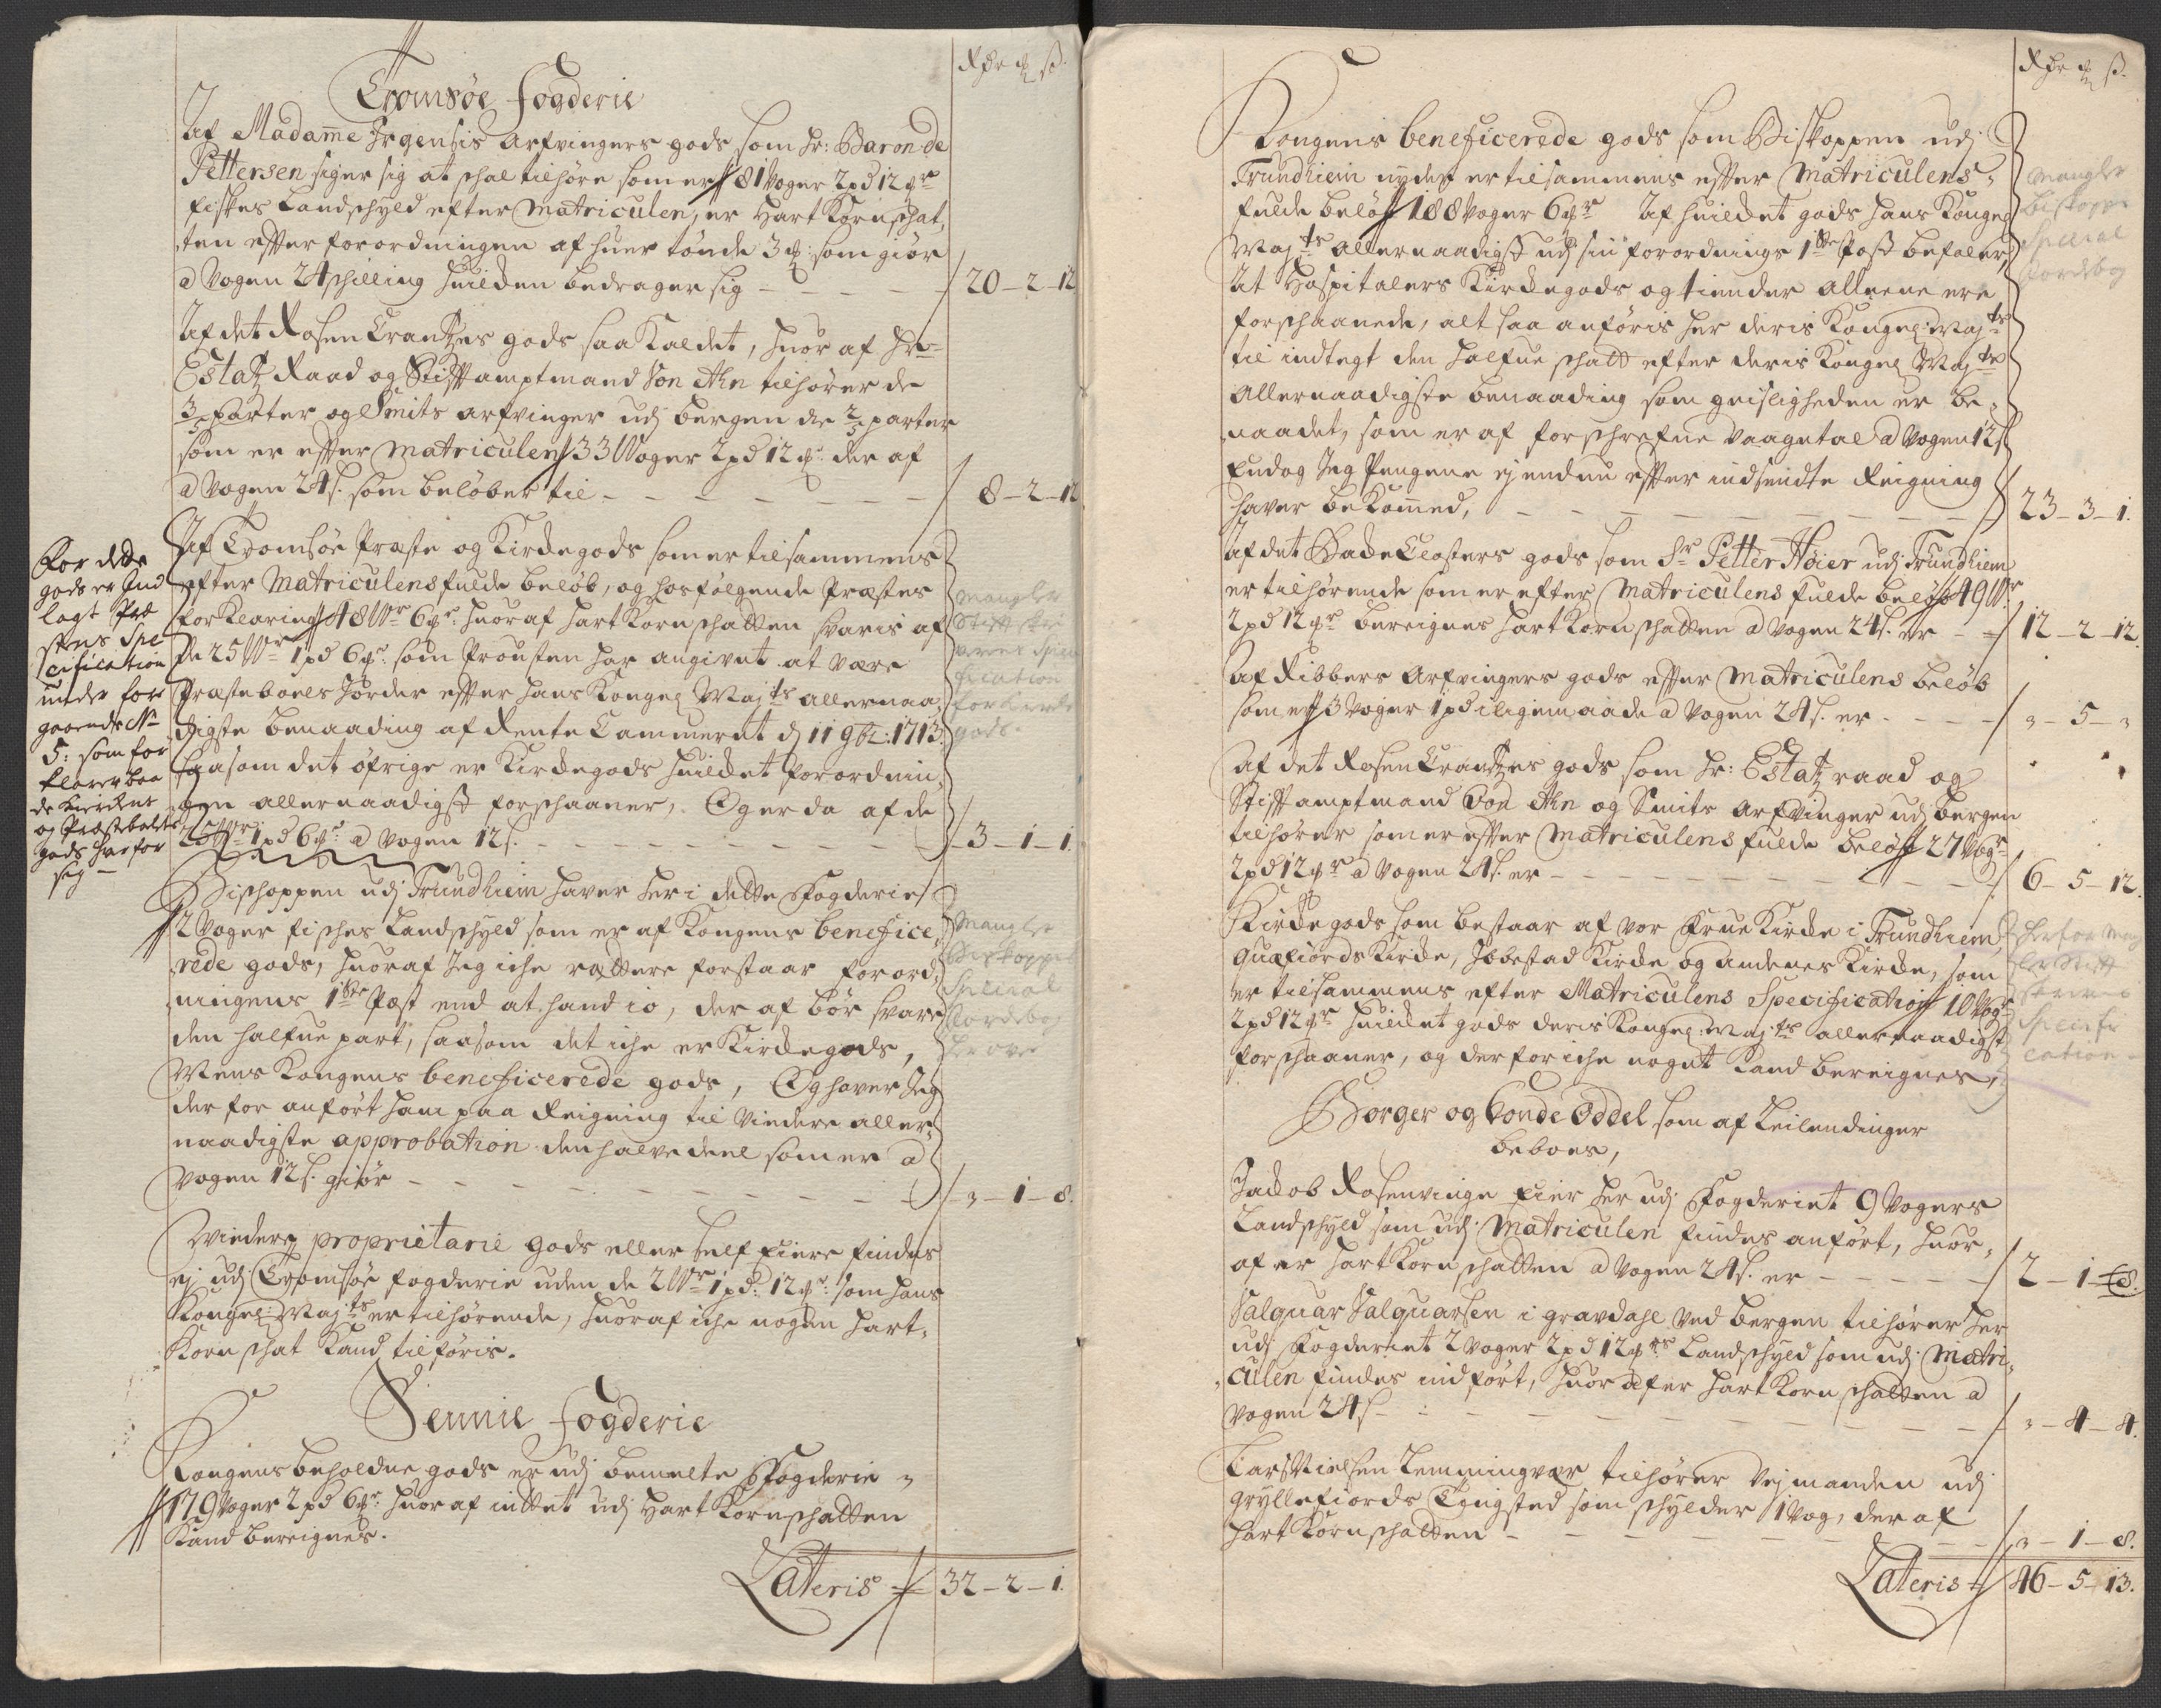 Rdr ₰ ß.
Tromsøe fogderie
Af Madame Irgensis Arfvingers gods som Hr: Baron de
Pettersen siger sig at schal tilhøre som er 81 Voger 2 pd 12 ₰r
fiskes Landschyld efter Matriculen, er Hart Korn schat,
ten effter forordningen af huer tønde 3 ₰: som giør
a Vogen 24 schilling huilcken bedrager sig — 20 – 2 – 12
Af det Rosen Crantzes gods saa kaldet, huor af Hr
Estatz Raad og Stiftamptmand Von Ahn tilhører de
3/5 parter og Smits arfvinger udj bergen de 2/5 parter
som er effter Matriculen 33 Woger 2 pd 12 ₰r. der af
a Vogen 24 s. som beløber til — 8 – 2 – 12
Af Tromsøe Præste og Kircke gods som er tilsammens
effter Matriculens fulde beløb, og hosfølgende Præstes
forklaring 48 Wr 6 ₰r. huoraf hart Korn schatten svaris af
de 25 Wr 1 pd 6 ₰r. som Prousten har angivet at være
Præsteboels Jorder effter hans Kongel Maj ts allernaa,
digste benaading af Rente Cammeret d 11 9br: 1713.
saasom det øfrige er Kirckegods huilcket forordnin,
gen allernaadigst forschaaner, Og er da af de
25 Wr 1 pd 6 ₰r. a Vogen 12 s. — 3 – 1 – 1.
For dette
gods er Ind
lagt Præ
stens Spe
cification
under for
gaaende No
5: som for
klarer baa
de Kirckens
og Præstebolets
gods hver for
sig —
Mangler
Stiftskri
verens Speci
fication
for Kircke
gods.
Bischoppen udj Trundhiem haver her i dette Fogderie
2 Voger fisches Landschyld som er af Kongens benefice,
rede gods, huoraf Jeg iche rættere forstaar forord,
ningens 1ste Post end at hand jo, der af bør svare
den halfue part, saasom det iche er Kirckegods,
Mens Kongens beneficerede gods, Og haver Jeg
der for anført ham paa Reigning til Viedere aller,
naadigste approbation den halve deel som er a
Vogen 12 s. giør — „ – 1 – 8.
Mangler
Biskoppens
Special
Jordebog
her over
Viedere proprietarie gods eller self Eiere findes
ej udj Tromsøe fogderie uden de 2 Wr 1 pd: 12 ₰r. som hans
Kongel: Maj ts er tilhørende, huoraf iche nogen hart,
Korn schat kand tilføris.
Sennie fogderie
Kongens beholdne gods er udj bemelte Fogderie „
179 Voger 2 pd 6 ₰r. huor af intet udj Hart Kornschatten
kand bereignes.
Lateris 32 – 2 – 1.
Rdr ₰ ß.
Kongens beneficerede gods som Biskoppen udj
Trundhiem nyder er tilsammens effter Matriculens,
fulde beløb 188 Voger 6 ₰r Af huilcket gods hans Kongel
Maj ts allernaadigst udj sin forordnings 1ste Post befaler,
At Hospitalers Kircke gods og tiender alleene ere
forschaanede, alt saa anføris her deris Kongel: Maj ts
til indtegt den halfue schatt efter deris Kongel Maj ts
Allernaadigste benaading som geisligheden er be,
naadet, som er af forschrefne Vaagetal a Vogen 12 s
Endog Jeg Pengene ej endnu effter indsendte Reigning
haver bekommed, — 23 – 3 – 1.
Mangler
Biskopens
Special
Jordebog
Af det Bade Closters gods som Sr Petter Høier udj Trundhiem
er tilhørende som er efter Matriculens fulde beløb 49 W.r
2 pd 12 ₰r bereignes hart Korn schatten a Vogen 24 s. er — 12 – 2 – 12.
Af Ribbers Arfvingers gods effter Matriculens beløb
som er 3 Voger 1 pd iligemaade a Vogen 24 s. er — „ – 5 – „
Af det Rosen Crantzes gods som Hr: Estatz raad og
Stiftamptmand Von Ahn og Smits Arfvinger udj bergen
tilhører som er effter Matriculens fulde beløb 27 Vogr
2 pd 12 ₰r a Vogen 24 s. er — 6 – 5 – 12.
Kircke gods som bestaar af vor Frue Kircke i Trundhiem,
Quæfiords Kircke, Ibbestad Kircke og Andenes Kircke, som
er tilsammens efter Matriculens Specification 10 Vogr
2 pd 12 ₰r huilcket gods deris Kongel: Maj ts allernaadigst
forschaaner, og der for iche noget kand bereignes,
Herfor mang
ler Stift
Specifi
cation
Borger og bonde Oddel som af Leilendinger
beboes,
Jackob Rosenvinge Eier her udj Fogderiet 9 Vogers
Landschyld som udj Matriculen findes anført, huor,
af er hart Korn schatten a Vogen 24 s. er — 2 – 1 – 8.
Salguar Salguarsen i gravdahl ved bergen tilhører her
udj Fogderiet 2 Voger 2 pd 12 ₰rs Landschyld som udj Matri,
culen findes indført, huor af er hart Korn schatten a
Vogen 24 s — „ – 4 – 4.
Lars Nielsen Lemmingvær tilhører Vejmanden udj
Gryllefiords Tingsted som schylder 1 Vog, der af
hart Kornschatten — „ – 1 – 8.
Lateris 46 – 5 – 13.